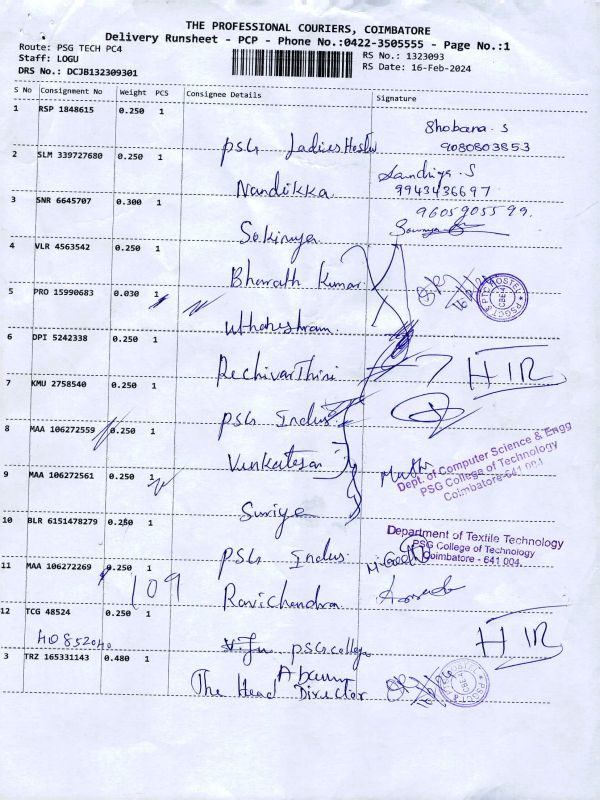 THE PROFESSIONAL COURIERS, COIMBATORE
Delivery Runsheet - PCP - Phone No.:0422-3505555 - Page No.:1
Route: PSG TECH PC4
Staff: LOGU
DRS No.: DCJB132309301
RS No.: 1323093
RS Date: 16-Feb-2024
S No Consignment No Weight PCS Consignee Details Signature
1 RSP 1848615 0.250 1
Shobana. S
PSG Ladies Hostel 9080803853
2 SLM 339727680 0.250 1
Sandhiya. S
Nandikka 9943436697
3 SNR 6645707 0.300 1
9605905599.
Sokinya
4 VLR 4563542 0.250 1
Bharath Kumar
5 PRO 15990683 0.030 1
6 DPI 5242338 0.250 1
HIR
7 KMU 2758540 0.250 1
PSG Indus
8 MAA 106272559 0.250 1
Venkatesan
Dept. of Computer Science & Engg
PSG College of Technology
Coimbatore-641 004
9 MAA 106272561 0.250 1
Suriya
10 BLR 6151478279 0.250 1
PSG Indus
Department of Textile Technology
PSG College of Technology
Coimbatore - 641 004.
11 MAA 106272269 0.250 1
109
Ravichandra
12 TCG 48524 0.250 1
HO852040
PSG college
HIR
3 TRZ 165331143 0.480 1
The Head Director